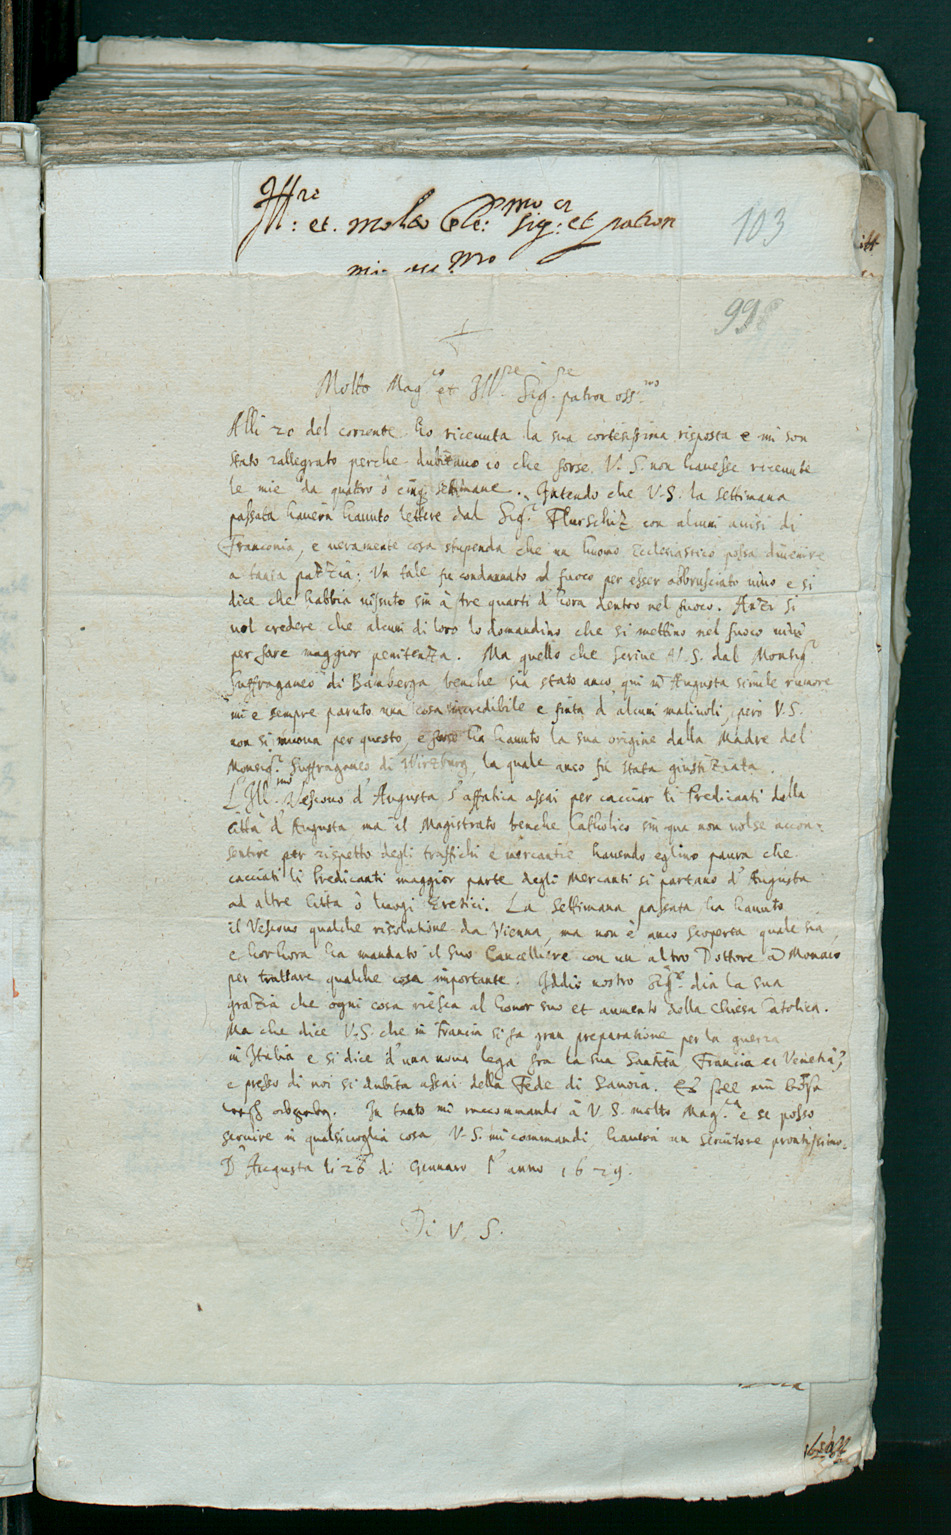 Ill.re et. molto Ecle: mo Sig: or et patron
103
mi oss.mo
99
Molto Mag.co et Ill.re Sig.re patron oss.mo
Alli 20 del corrente ho riceuuta la sua cortesissima risposta e mi son
stato rallegrato perche dubitauo io che forse V. S. non hauesse riceuute
le mie da quattro ò cinq settimane. Intendo che V. S. la settimana
passata hauerà hauuto lettere dal Sig.r Flurschiz con alcuni auisi di
Franconia, e ueramente cosa stupenda che un huomo Ecclesiastico possa diuenire
a tanta pazzia: Un tale fu condannato al fuoco per esser abbrusciato uiuo e si
dice che habbia uissuto sin à tre quarti d'hora dentro nel fuoco. Anzi si
uol credere che alcuni di loro lo domandino che si mettino nel fuoco uiui
per fare maggior penitenza. Ma quello che scriue V. S. dal Monsig.r
Suffraganeo di Bamberga benche sia stato anco qui in Augusta simile rumore
mi e sempre paruto una cosa incredibile e finta d'alcuni maliuoli, però V. S.
non si muoua per questo, e forse ha hauuto la sua origine dalla Madre del
Monsig.r Suffraganeo di Wirzburg, la quale anco fu stata giustiziata.
L'Ill.mo Vescouo d'Augusta s'affatica assai per cacciar li Predicanti dalla
città d'Augusta ma il Magistrato benche Catholico sin qua non uolse accon-
sentire per rispetto degli traffichi e mercantie hauendo eglino paura che
cacciati li Predicanti maggior parte degli Mercanti si partano d'Augusta
ad altre città ò luogi Eretici. La settimana passata ha hauuto
il Vescouo qualche risolutione da Vienna, ma non è anco scoperta quale sia,
e horhora ha mandato il suo Cancelliere con un altro Dottore a Monaco
per trattare qualche cosa importante. Iddio nostro Sig.re dia la sua
grazia che ogni cosa riesca al honor suo et aumento della Chiesa Catolica.
Ma che dice V. S. che in Francia si fa gran preparatione per la guerra
in Italia e si dice d'una noua lega fra la sua Santità Francia et Venetia?
e presso di noi si dubita assai della Fede di Sauoia.
In tanto mi raccommando à V. S. molto Mag.ca e se posso
seruire in qualsiuoglia cosa V. S. mi commandi hauerà un seruitore prontissimo.
D'Augusta li 26 di Gennaro l'anno 1629.
Di V. S.